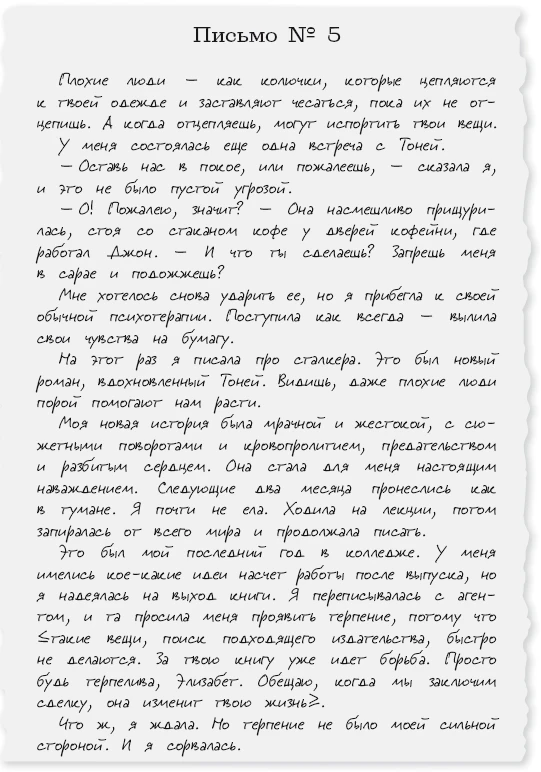 Письмо № 5
Плохие люди — как колючки, которые цепляются
к твоей одежде и заставляют чесаться, пока их не от-
цепишь. А когда отцепляешь, могут испортить твои вещи.
У меня состоялась еще одна встреча с Тоней.
— Оставь нас в покое, или пожалеешь, — сказала я,
и это не было пустой угрозой.
— О! Пожалею, значит? — Она насмешливо прищури-
лась, стоя со стаканом кофе у дверей кофейни, где
работал Джон. — И что ты сделаешь? Запрешь меня
в сарае и подожжешь?
Мне хотелось снова ударить ее, но я прибегла к своей
обычной психотерапии. Поступила как всегда — вылила
свои чувства на бумагу.
На этот раз я писала про сталкера. Это был новый
роман, вдохновленный Тоней. Видишь, даже плохие люди
порой помогают нам расти.
Моя новая история была мрачной и жестокой, с сю-
жетными поворотами и кровопролитием, предательством
и разбитым сердцем. Она стала для меня настоящим
наваждением. Следующие два месяца пронеслись как
в тумане. Я почти не ела. Ходила на лекции, потом
запиралась от всего мира и продолжала писать.
Это был мой последний год в колледже. У меня
имелись кое-какие идеи насчет работы после выпуска, но
я надеялась на выход книги. Я переписывалась с аген-
том, и та просила меня проявить терпение, потому что
≤такие вещи, поиск подходящего издательства, быстро
не делаются. За твою книгу уже идет борьба. Просто
будь терпелива, Элизабет. Обещаю, когда мы заключим
сделку, она изменит твою жизнь≥.
Что ж, я ждала. Но терпение не было моей сильной
стороной. И я сорвалась.